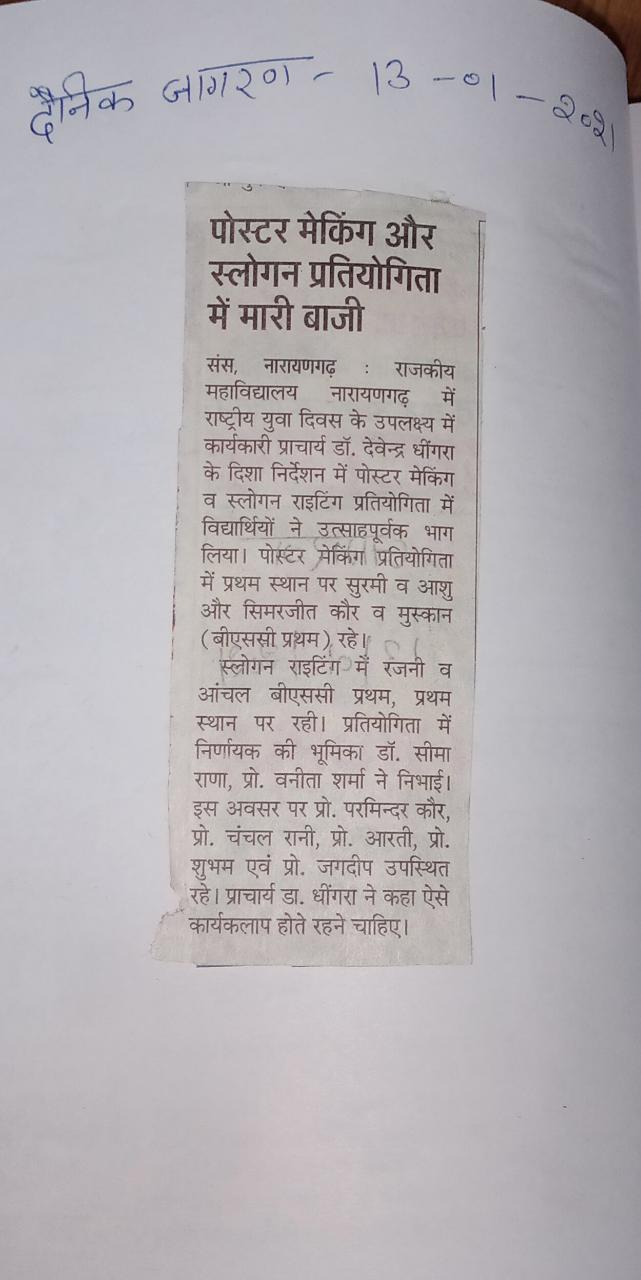 दैनिक जागरण - 13 -०१ - २०२१
पोस्टर मेकिंग और
स्लोगन प्रतियोगिता
में मारी बाजी
संस, नारायणगढ़ : राजकीय
महाविद्यालय नारायणगढ़ में
राष्ट्रीय युवा दिवस के उपलक्ष्य में
कार्यकारी प्राचार्य डॉ. देवेन्द्र धींगरा
के दिशा निर्देशन में पोस्टर मेकिंग
व स्लोगन राइटिंग प्रतियोगिता में
विद्यार्थियों ने उत्साहपूर्वक भाग
लिया। पोस्टर मेकिंग प्रतियोगिता
में प्रथम स्थान पर सुरमी व आशु
और सिमरजीत कौर व मुस्कान
(बीएससी प्रथम) रहे।
स्लोगन राइटिंग में रंजनी व
आंचल बीएससी प्रथम, प्रथम
स्थान पर रही। प्रतियोगिता में
निर्णायक की भूमिका डॉ. सीमा
राणा, प्रो. वनीता शर्मा ने निभाई।
इस अवसर पर प्रो. परमिन्दर कौर,
प्रो. चंचल रानी, प्रो. आरती, प्रो.
शुभम एवं प्रो. जगदीप उपस्थित
रहे। प्राचार्य डा. धींगरा ने कहा ऐसे
कार्यकलाप होते रहने चाहिए।